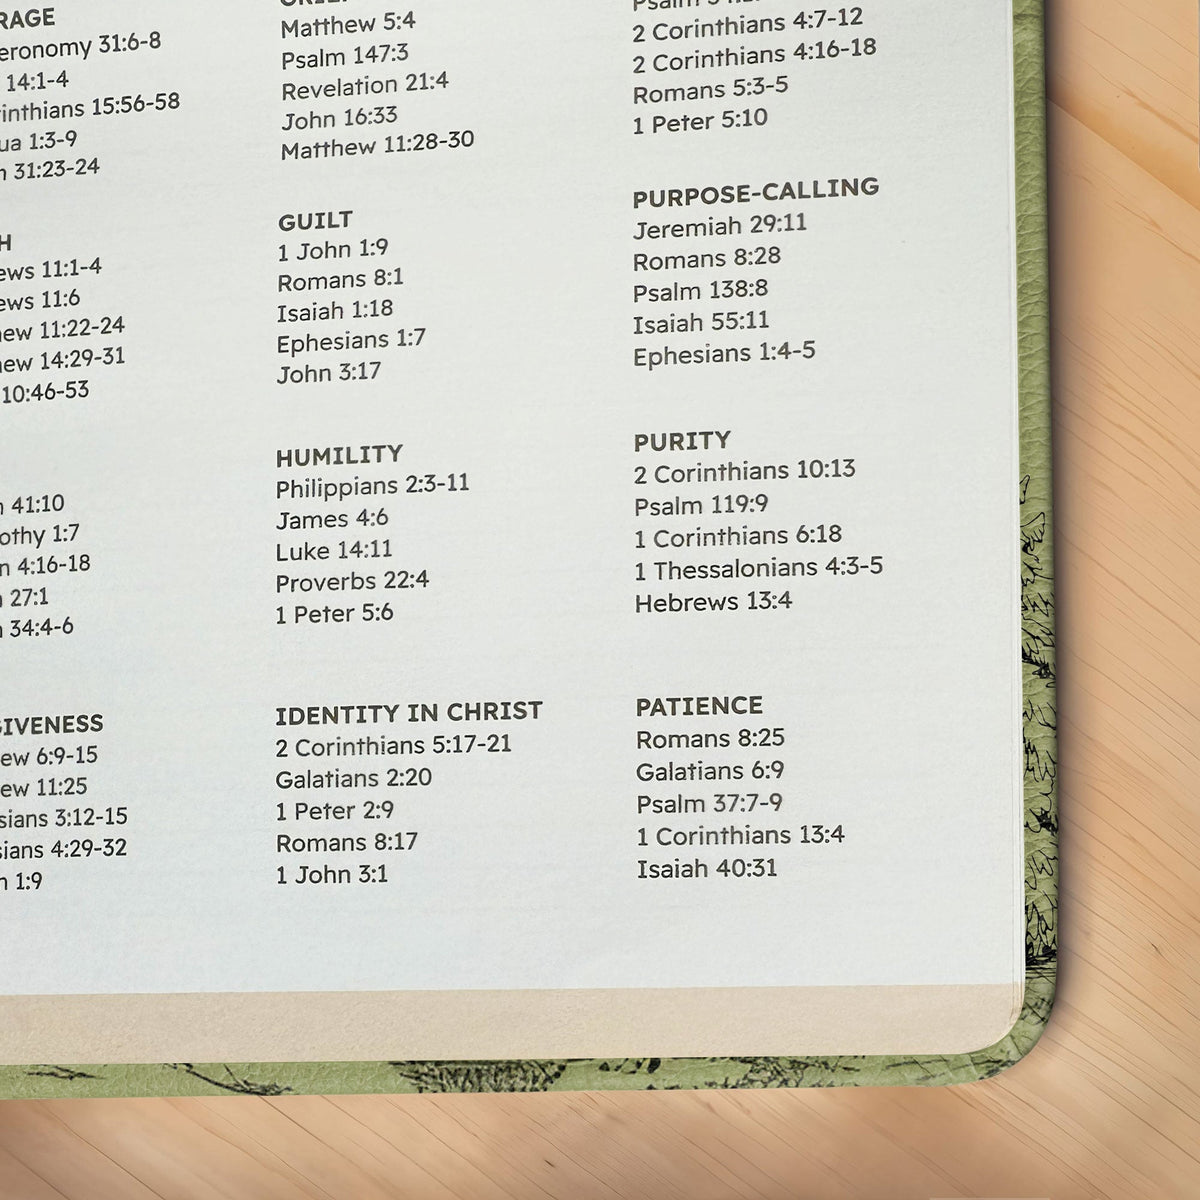 RAGE
eronomy 31:6-8
14:1-4
inthians 15:56-58
ua 1:3-9
31:23-24
H
ews 11:1-4
ews 11:6
ew 11:22-24
ew 14:29-31
10:46-53
41:10
othy 1:7
n 4:16-18
27:1
34:4-6
GIVENESS
ew 6:9-15
ew 11:25
sians 3:12-15
sians 4:29-32
n 1:9
Matthew 5:4
Psalm 147:3
Revelation 21:4
John 16:33
Matthew 11:28-30
GUILT
1 John 1:9
Romans 8:1
Isaiah 1:18
Ephesians 1:7
John 3:17
HUMILITY
Philippians 2:3-11
James 4:6
Luke 14:11
Proverbs 22:4
1 Peter 5:6
IDENTITY IN CHRIST
2 Corinthians 5:17-21
Galatians 2:20
1 Peter 2:9
Romans 8:17
1 John 3:1
Psalm
2 Corinthians 4:7-12
2 Corinthians 4:16-18
Romans 5:3-5
1 Peter 5:10
PURPOSE-CALLING
Jeremiah 29:11
Romans 8:28
Psalm 138:8
Isaiah 55:11
Ephesians 1:4-5
PURITY
2 Corinthians 10:13
Psalm 119:9
1 Corinthians 6:18
1 Thessalonians 4:3-5
Hebrews 13:4
PATIENCE
Romans 8:25
Galatians 6:9
Psalm 37:7-9
1 Corinthians 13:4
Isaiah 40:31